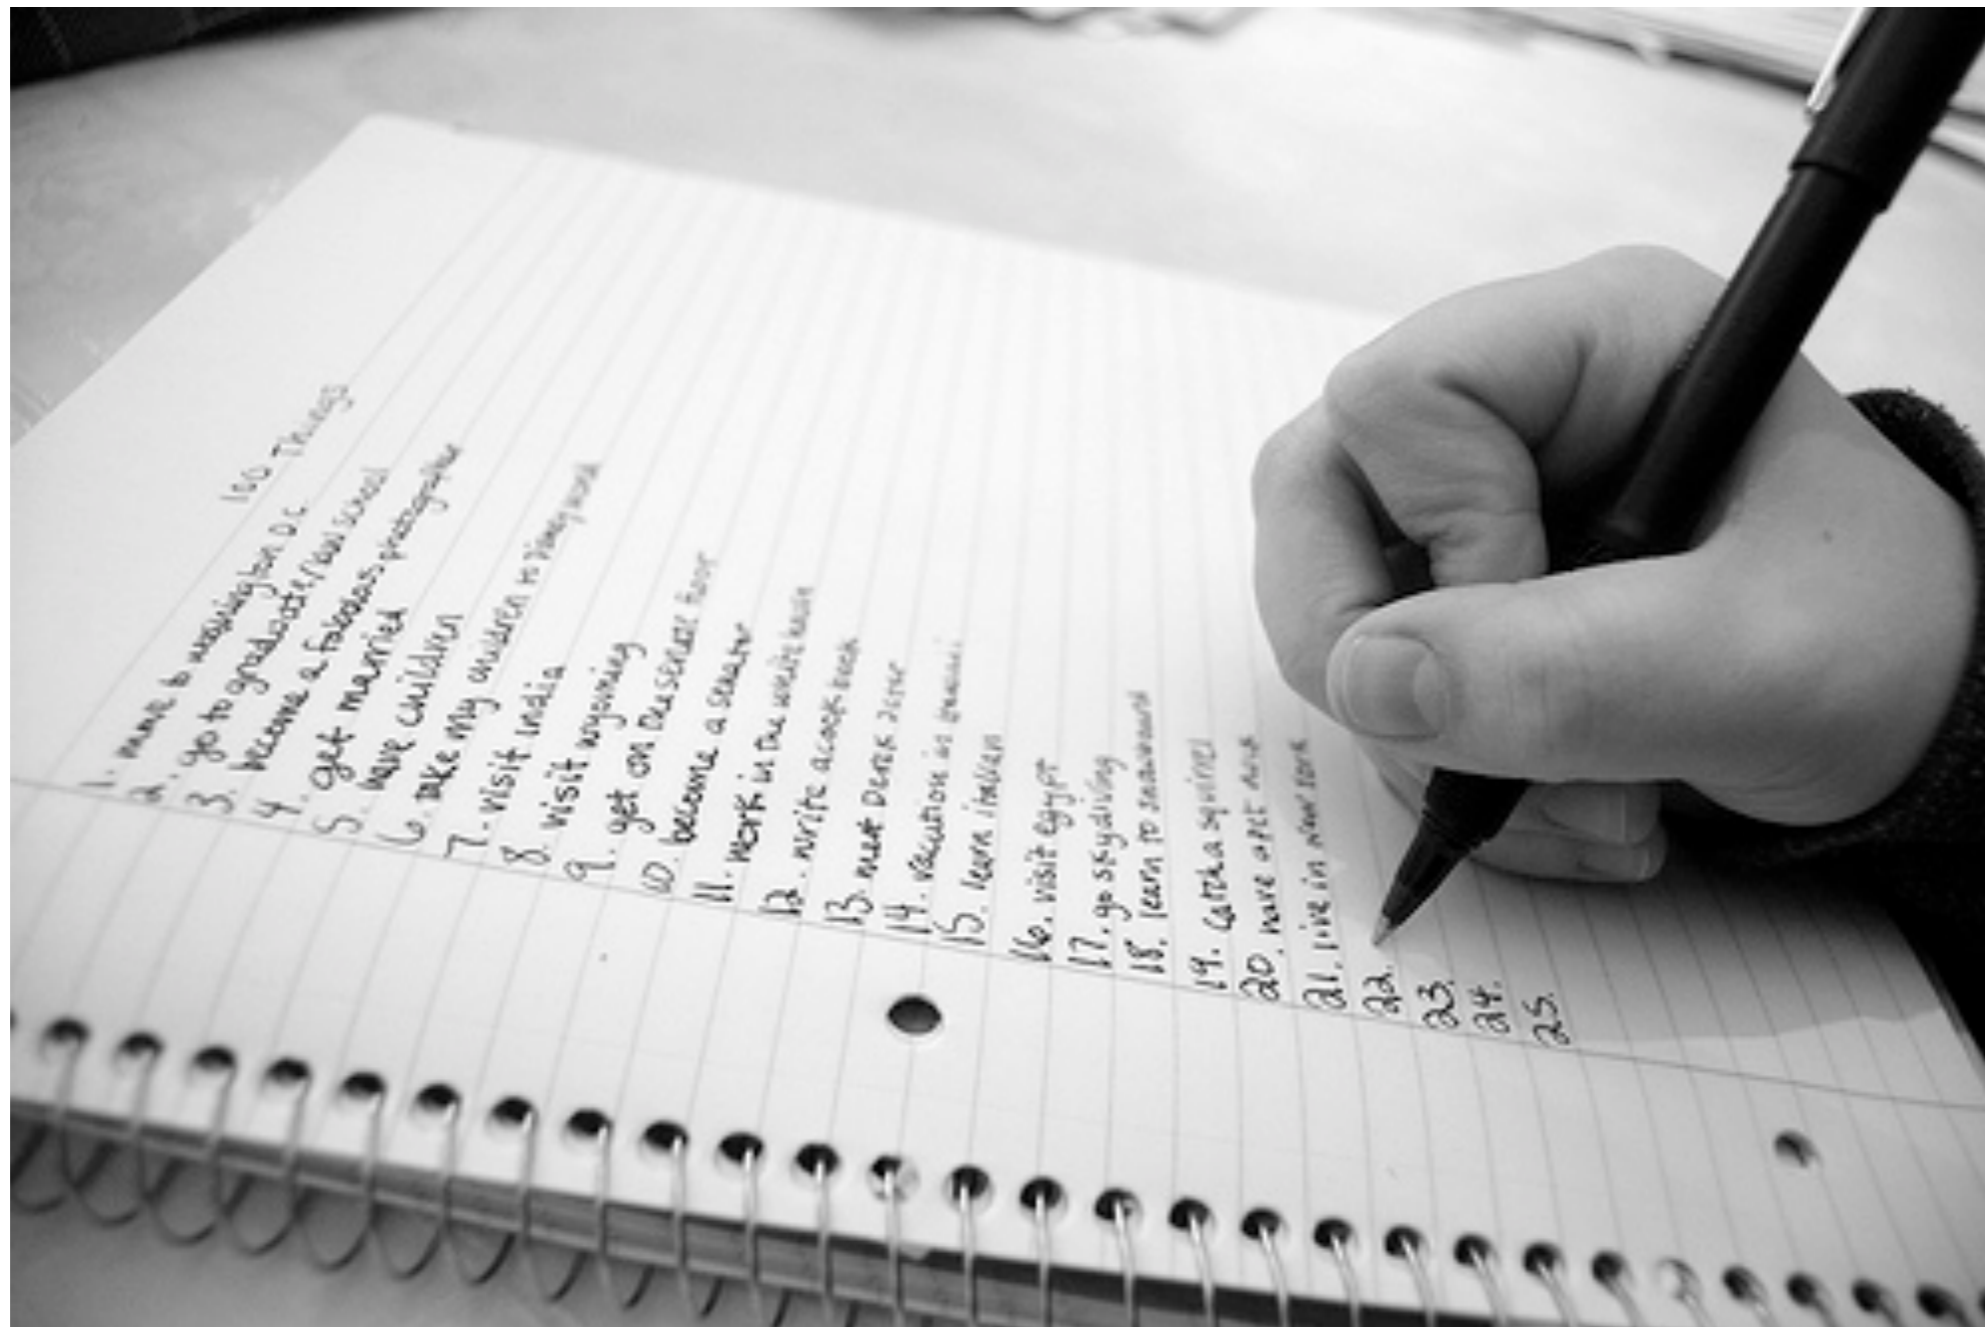 100 Things
1. move to washington D.C.
2. go to graduate/law school
3. become a fabulous photographer
4. get married
5. have children
6. take my children to disney world
7. visit India
8. visit wyoming
9. get on the senate floor
10. become a senator
11. work in the white house
12. write a cook book
13. meet Derek Jeter
14. vacation in Hawaii
15. learn italian
16. visit egypt
17. go skydiving
18. learn to snowboard
19. catch a squirrel
20. have a pet
21. live in new york
22.
23.
24.
25.